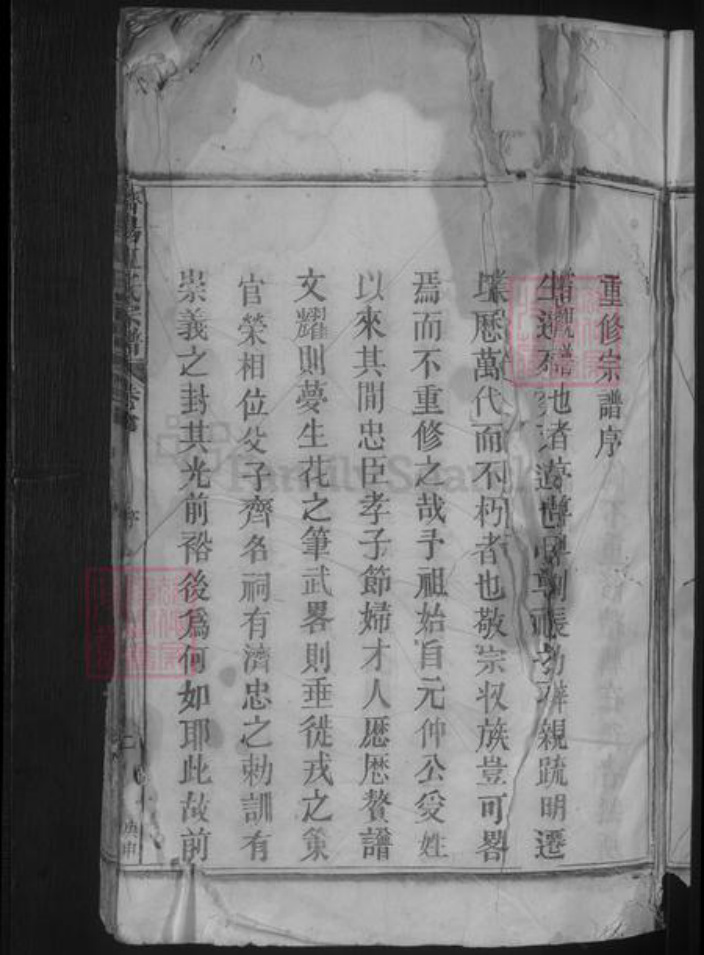 重修宗譜序
也者 親䟽明遷
歷萬代而不朽者也敬宗收族豈可畧
焉而不重修之哉予祖始自元仲公受姓
以來其間忠臣孝子節婦才人歷歷贅譜
文耀則夢生花之筆武畧則垂從戎之策
官榮相位父子齊名祠有濟忠之勅訓有
崇義之封其光前裕後為何如耶此故前
氏宗譜
序
二
庚申
FamilySearch